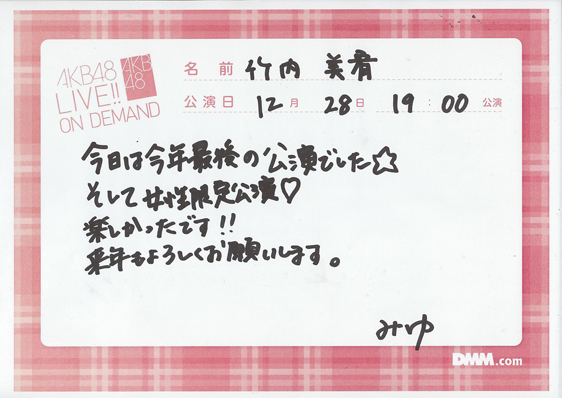 AKB48
LIVE!!
ON DEMAND
AKB
48
名前 竹内 美宥
公演日 12月 28日 19:00 公演
今日は今年最後の公演でした☆
そして女性限定公演♡
楽しかったです!!
来年もよろしくお願いします。
みゆ
DMM.com